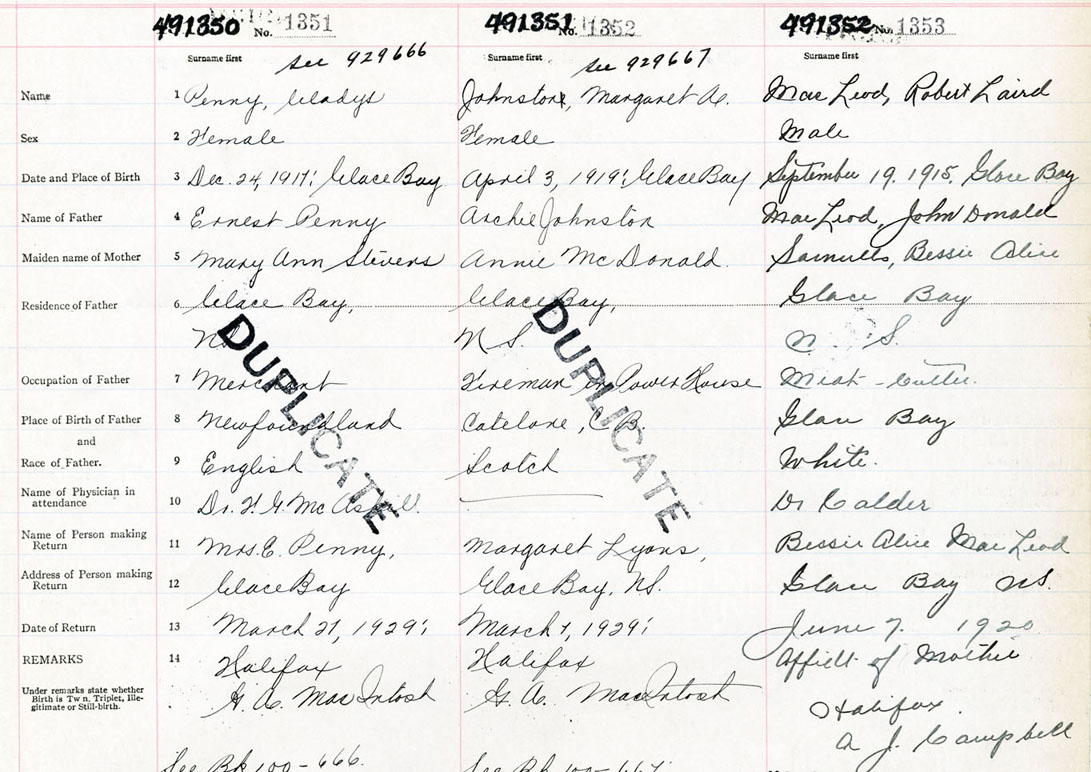 491350 No. 1351 491351 No. 1352 491352 No. 1353
Surname first see 929666 Surname first see 929667 Surname first
Name 1 Penny, Gladys Johnston, Margaret A. MacLeod, Robert Laird
Sex 2 Female Female Male
Date and Place of Birth 3 Dec. 24, 1917; Glace Bay April 3, 1919; Glace Bay September 19. 1915. Glace Bay
Name of Father 4 Ernest Penny Archie Johnston MacLeod, John Donald
Maiden name of Mother 5 Mary Ann Stevens Annie McDonald. Samuels, Bessie Alice
Residence of Father 6 Glace Bay, Glace Bay, Glace Bay
N S. N. S.
Occupation of Father 7 Merchant Fireman in Power House Meat-Cutter.
Place of Birth of Father 8 Newfoundland Catalone, C.B. Glace Bay
and
Race of Father. 9 English Scotch White.
Name of Physician in
attendance 10 Dr. McAskill. Dr Calder
Name of Person making
Return 11 Mrs. E. Penny, Margaret Lyons, Bessie Alice MacLeod
Address of Person making
Return 12 Glace Bay Glace Bay, N.S. Glace Bay N.S.
Date of Return 13 March 21, 1929; March 7, 1929; June 7. 1920
REMARKS 14 Halifax Halifax Affidt. of Mother
Under remarks state whether
Birth is Twin, Triplet, Ille-
gitimate or Still-birth.
G. A. MacIntosh G. A. MacIntosh Halifax.
A J. Campbell
See Bk 100-666. See Bk 100-667.
DUPLICATE DUPLICATE